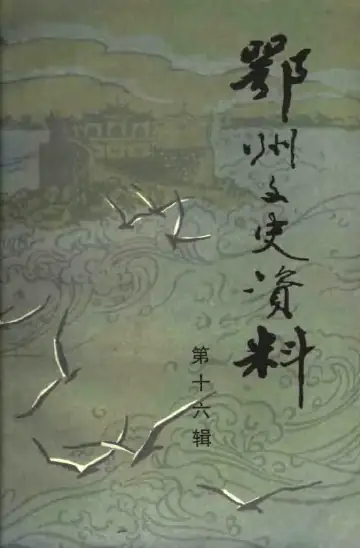 鄂州文史资料
第十六辑